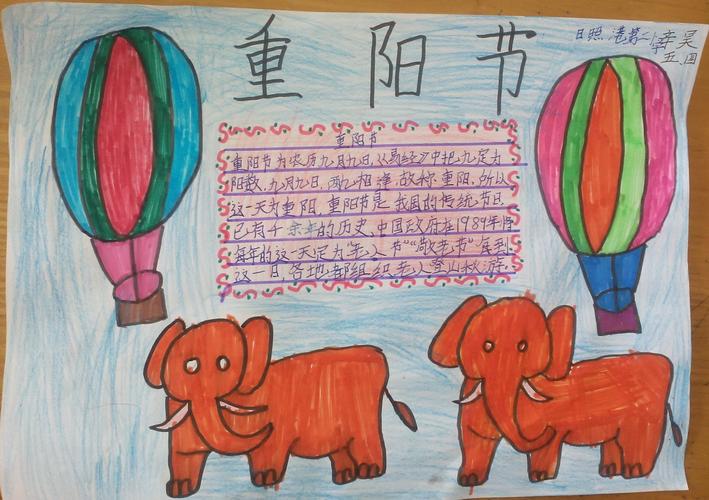 重阳节
日照港第二小学 吴
五、四
重阳节
重阳节为农历九月九日，《易经》中把九定为
阳数，九月九日，两九相逢，故称重阳，所以
这一天为重阳，重阳节是我国的传统节日，
已有千余年的历史，中国政府在1989年将
每年的这一天定为“老人节”“敬老节”每到
这一日，各地都组织老人登山秋游。